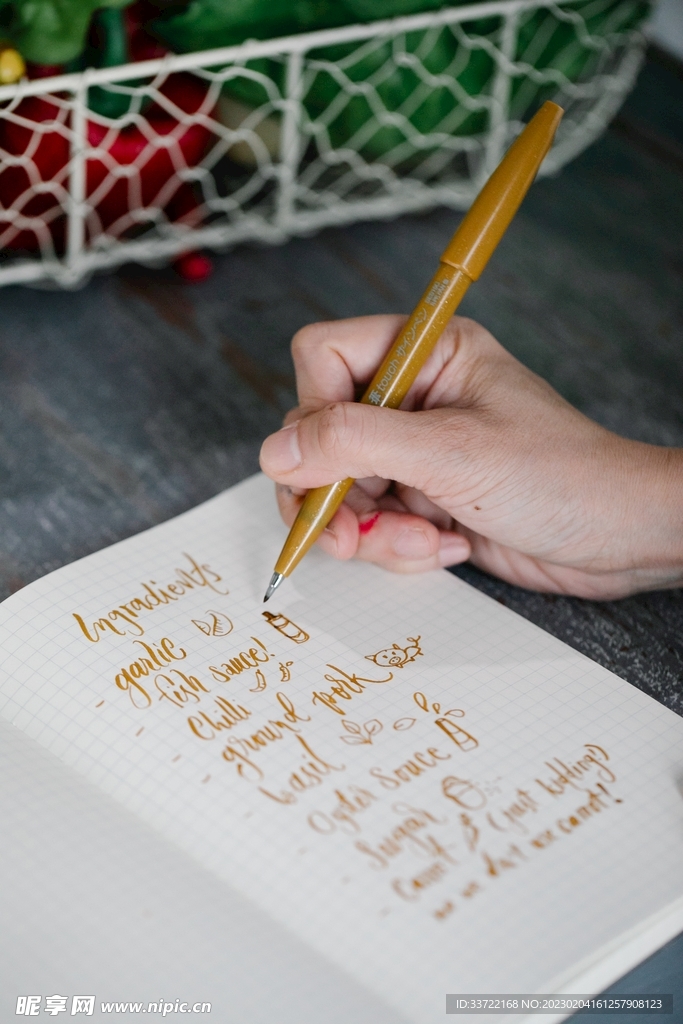 touch サインペン
Ingredients
- garlic
- fish sauce!
- chilli
- ground pork
- basil
- Oyster sauce
- Sugar
- (just kidding!)
we don't use carrot!
昵享网 www.nipic.cn
ID:33722168 NO:20230204161257908123